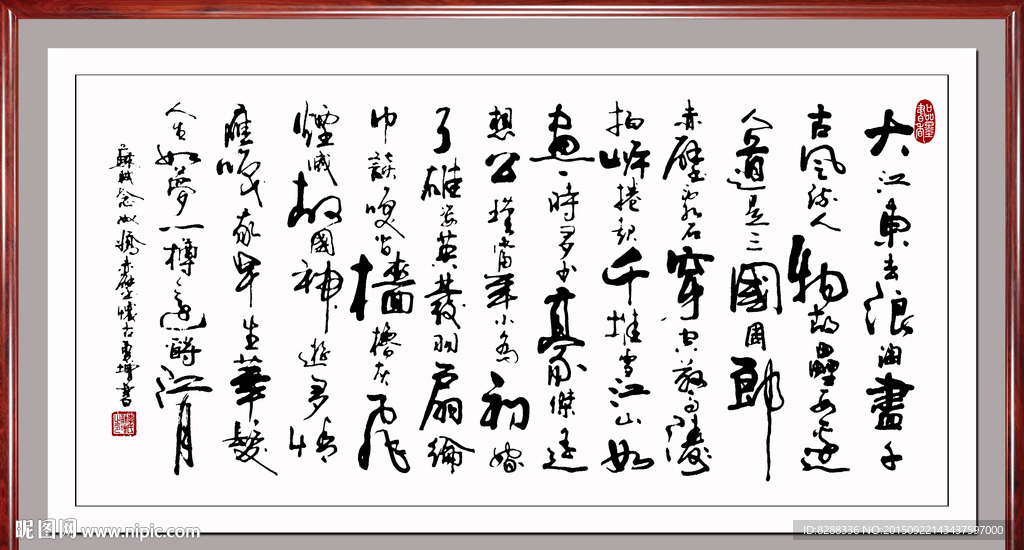 大江東去浪淘盡千
古風流人物故壘西邊
人道是三國周郎
赤壁亂石穿空驚濤
拍岸捲起千堆雪江山如
畫一時多少豪傑遙
想公瑾當年小喬初嫁
了雄姿英發羽扇綸
巾談咲間檣櫓灰飛
煙滅故國神遊多情
應咲我早生華髮
人生如夢一樽還酹江月
蘇軾念奴嬌赤壁懷古書
昵图网 www.nipic.com
ID:8288336 NO:20150922143437597000